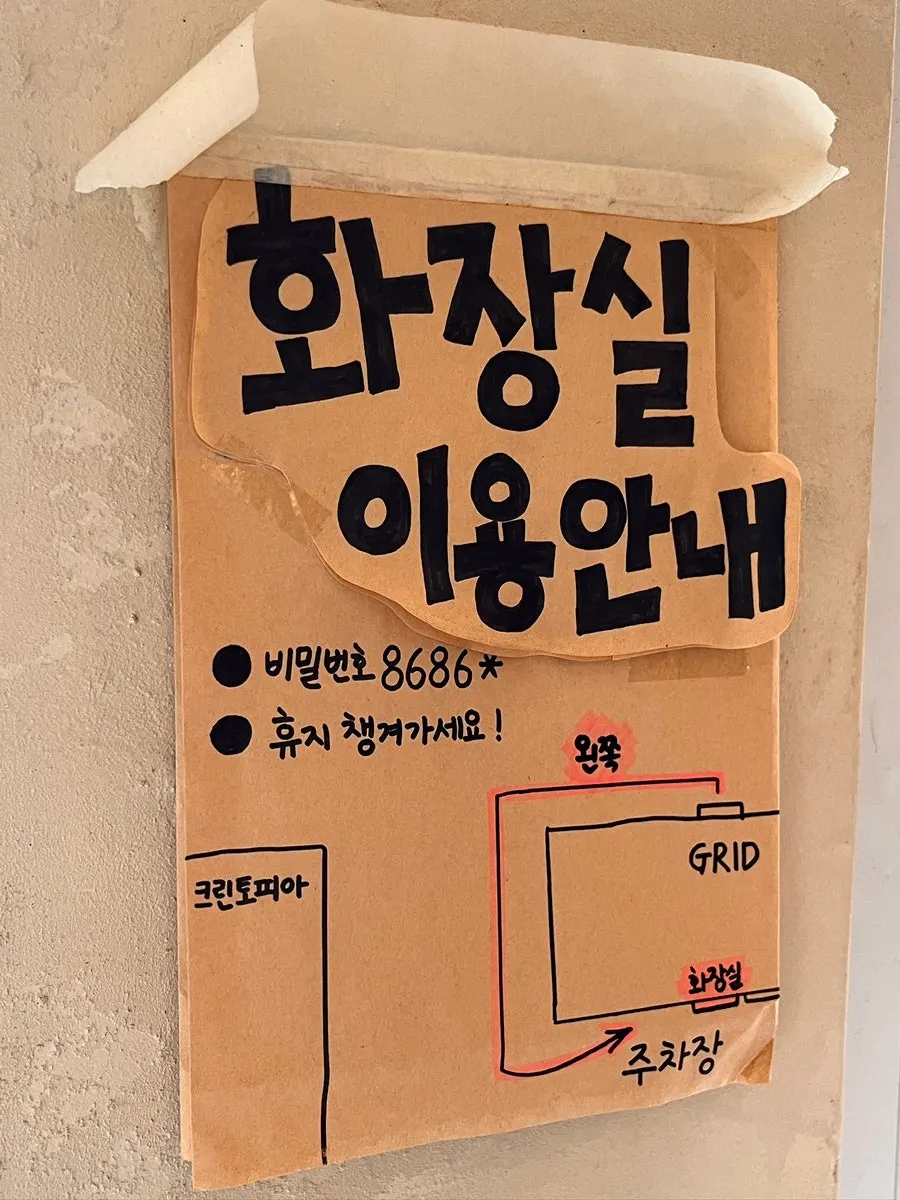 화장실
이용안내
● 비밀번호 8686*
● 휴지 챙겨가세요!
왼쪽
GRID
크린토피아
화장실
주차장